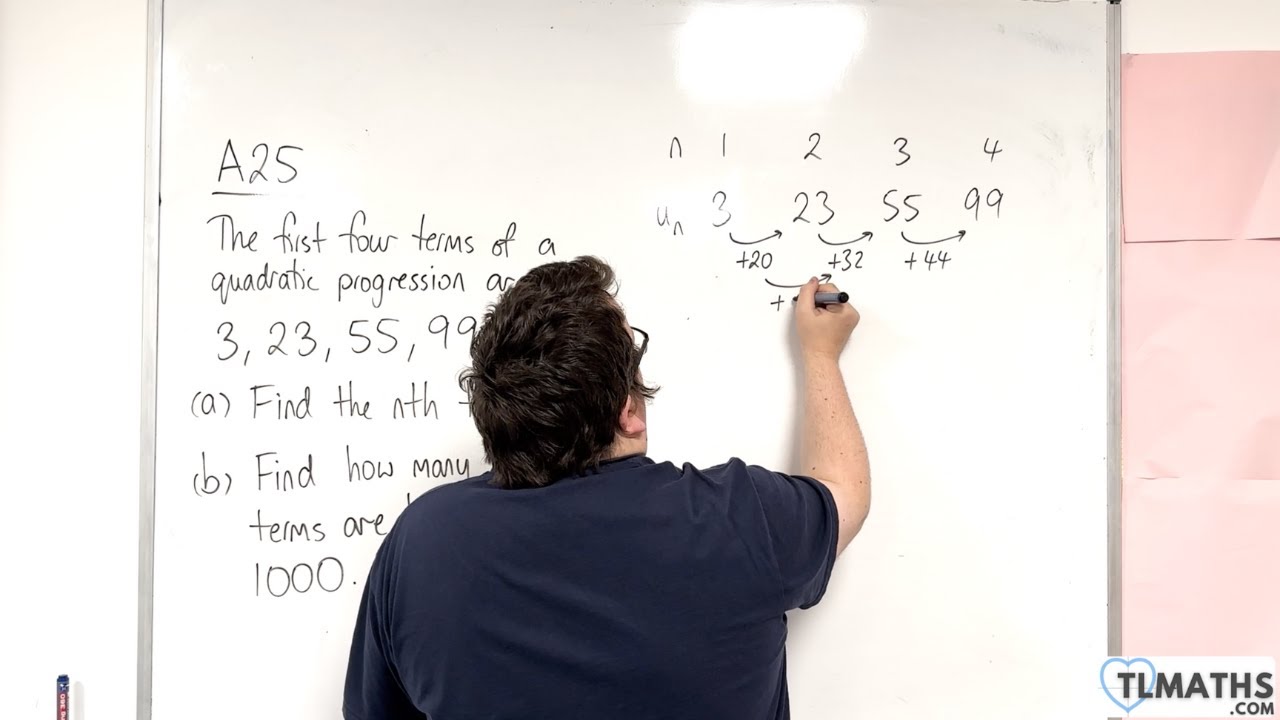 A25
The first four terms of a
quadratic progression
3, 23, 55, 99
(a) Find the nth
(b) Find how many
terms are
1000.
n 1 2 3 4
uₙ 3 23 55 99
+20 +32 +44
+
TLMATHS
.COM